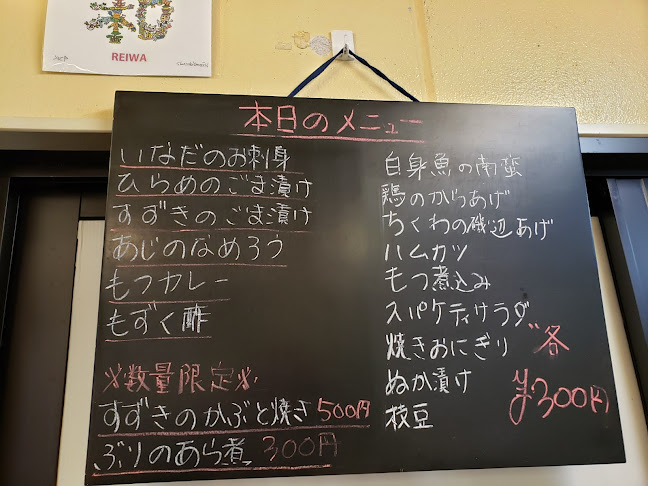 令和
REIWA
本日のメニュー
いなだのお刺身
ひらめのごま漬け
すずきのごま漬け
あじのなめろう
もつカレー
もずく酢
※数量限定※
すずきのかぶと焼き500円
ぶりのあら煮 300円
白身魚の南蛮
鶏のからあげ
ちくわの磯辺あげ
ハムカツ
もつ煮込み
スパゲティサラダ
焼きおにぎり
ぬか漬け
枝豆
各
¥300円